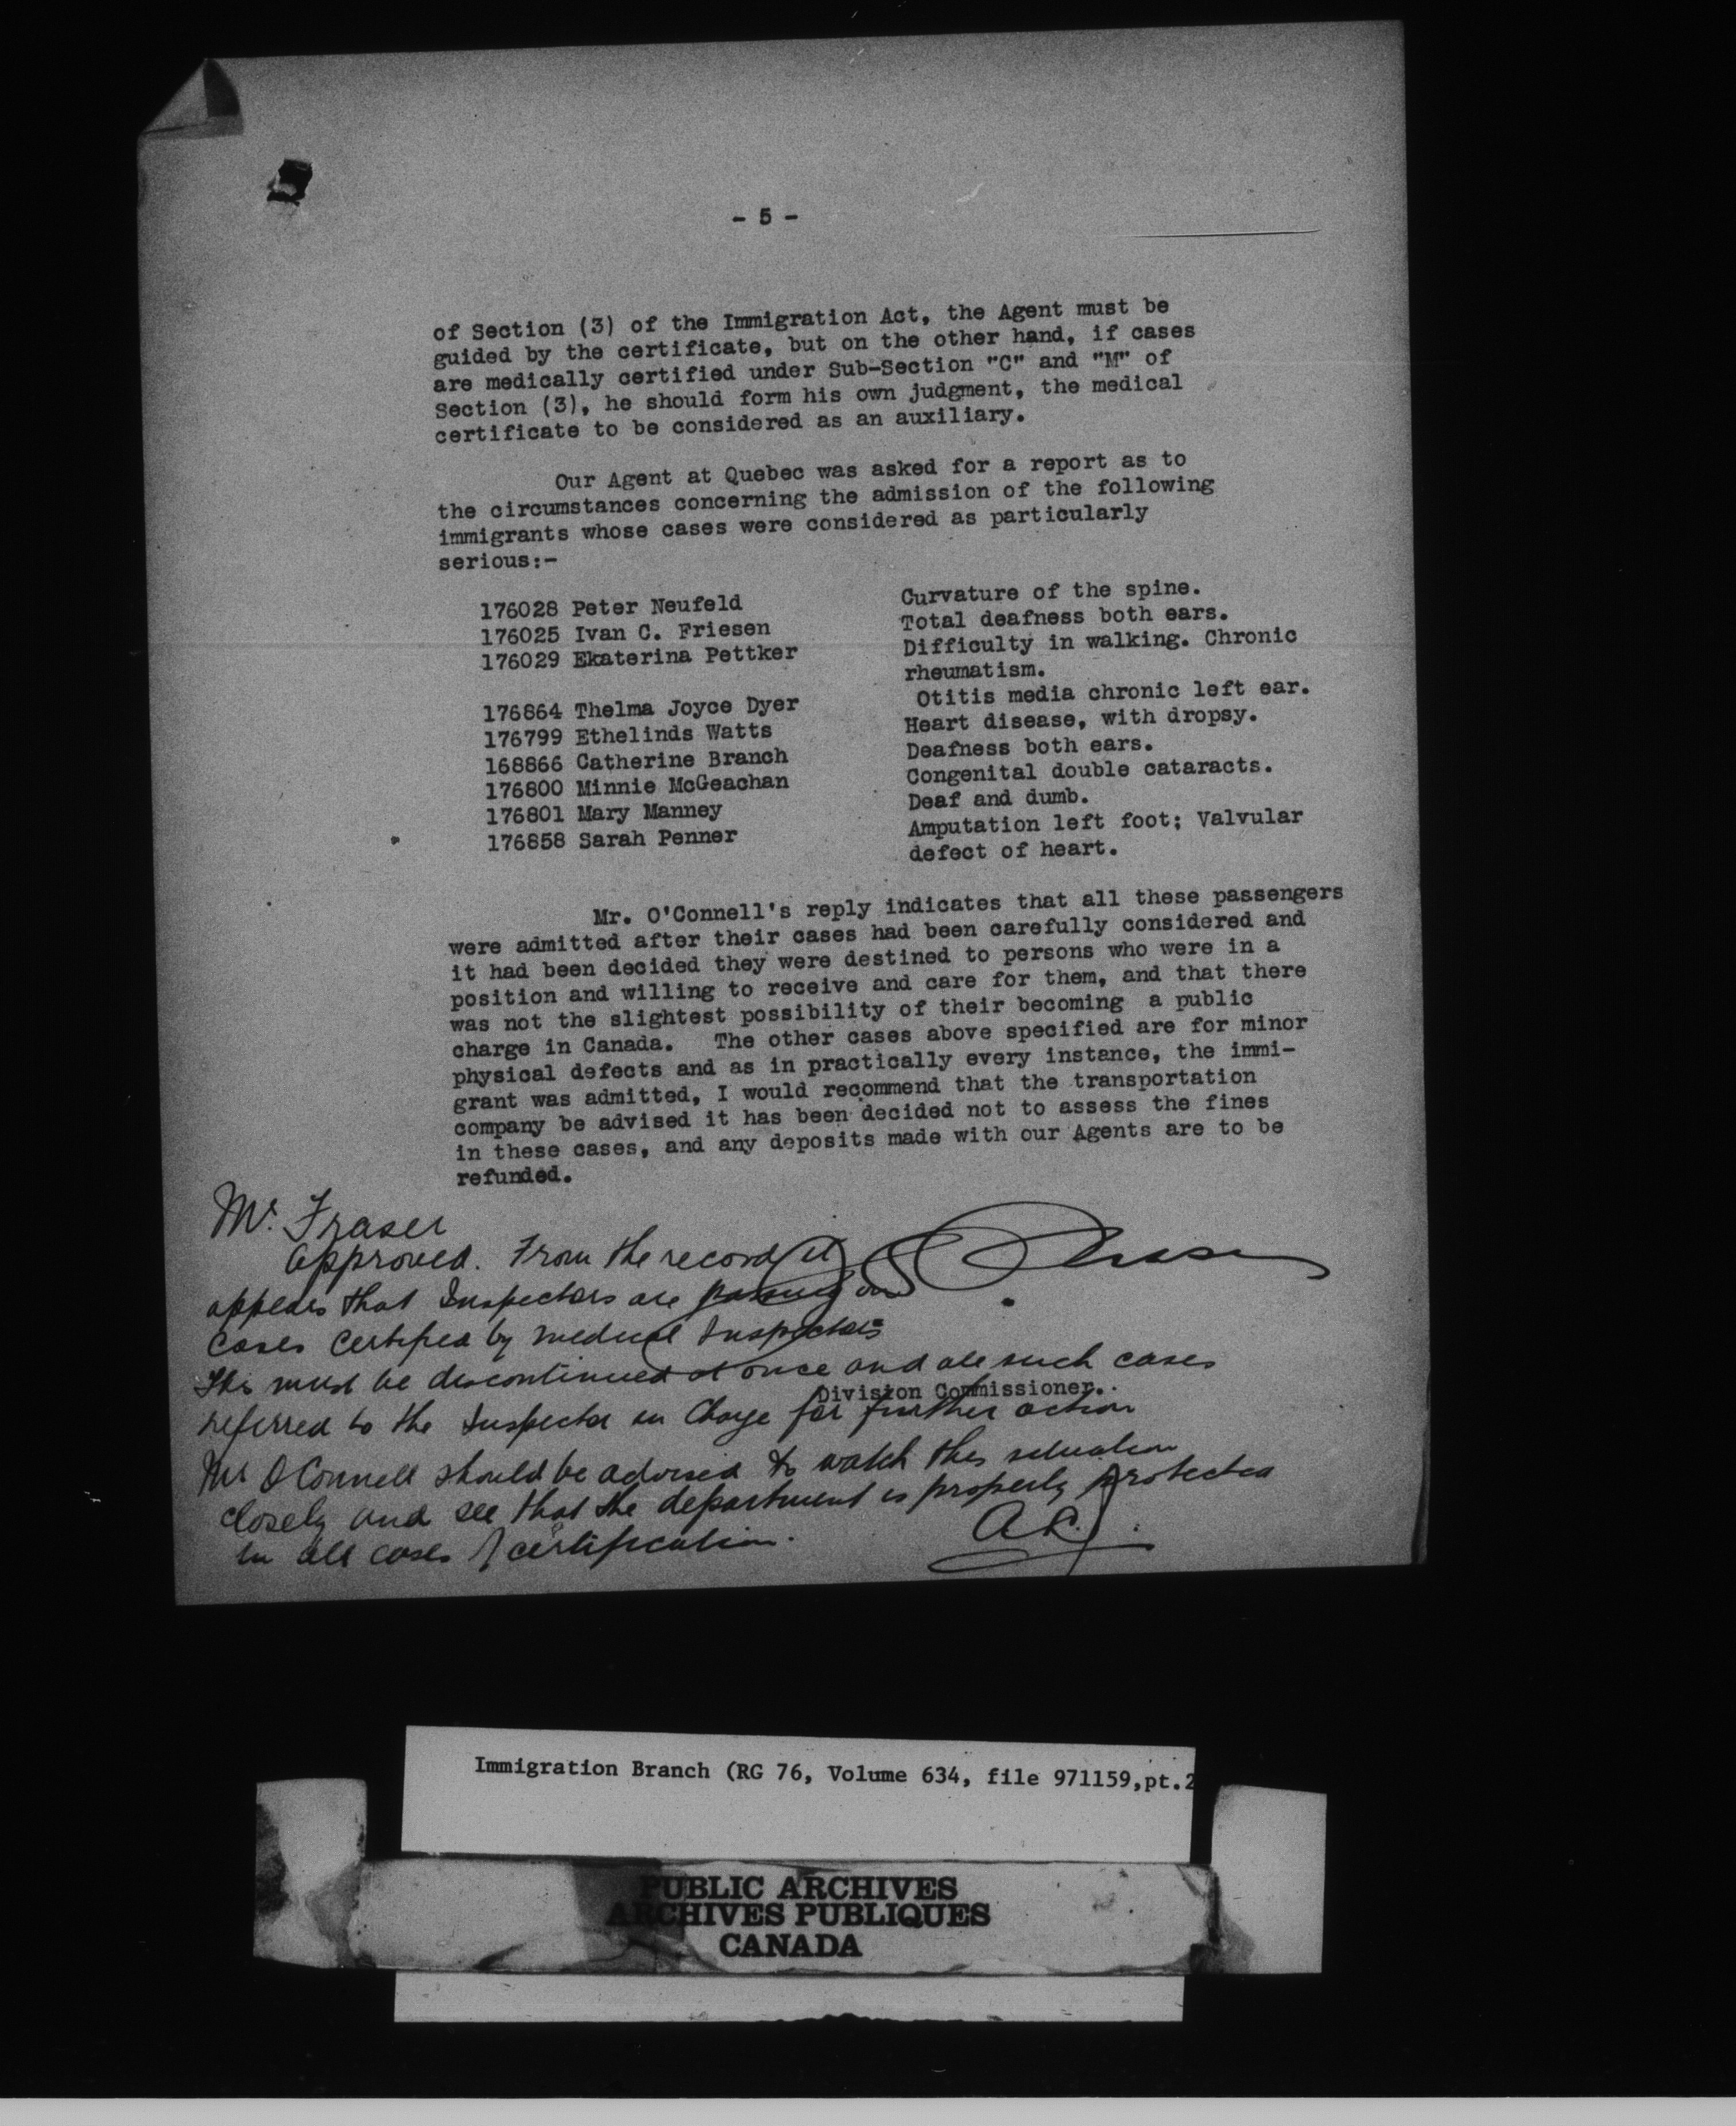 - 5 -
of Section (3) of the Immigration Act, the Agent must be
guided by the certificate, but on the other hand, if cases
are medically certified under Sub-Section "C" and "M" of
Section (3), he should form his own judgment, the medical
certificate to be considered as an auxiliary.
Our Agent at Quebec was asked for a report as to
the circumstances concerning the admission of the following
immigrants whose cases were considered as particularly
serious:-
176028 Peter Neufeld Curvature of the spine.
176025 Ivan C. Friesen Total deafness both ears.
176029 Ekaterina Pettker Difficulty in walking. Chronic
rheumatism.
176864 Thelma Joyce Dyer Otitis media chronic left ear.
176799 Ethelinds Watts Heart disease, with dropsy.
168866 Catherine Branch Deafness both ears.
176800 Minnie McGeachan Congenital double cataracts.
176801 Mary Manney Deaf and dumb.
176858 Sarah Penner Amputation left foot; Valvular
defect of heart.
Mr. O'Connell's reply indicates that all these passengers
were admitted after their cases had been carefully considered and
it had been decided they were destined to persons who were in a
position and willing to receive and care for them, and that there
was not the slightest possibility of their becoming a public
charge in Canada. The other cases above specified are for minor
physical defects and as in practically every instance, the immi-
grant was admitted, I would recommend that the transportation
company be advised it has been decided not to assess the fines
in these cases, and any deposits made with our Agents are to be
refunded.
Mr. Fraser
Approved. From the record it
appears that Inspectors are passing on
cases certified by medical Inspectors
This must be discontinued at once and all such cases
Division Commissioner.
referred to the Inspector in Charge for further action
Mr O'Connell should be advised to watch this situation
closely and see that the department is properly protected
in all cases of certification.
Immigration Branch (RG 76, Volume 634, file 971159,pt.2
PUBLIC ARCHIVES
ARCHIVES PUBLIQUES
CANADA